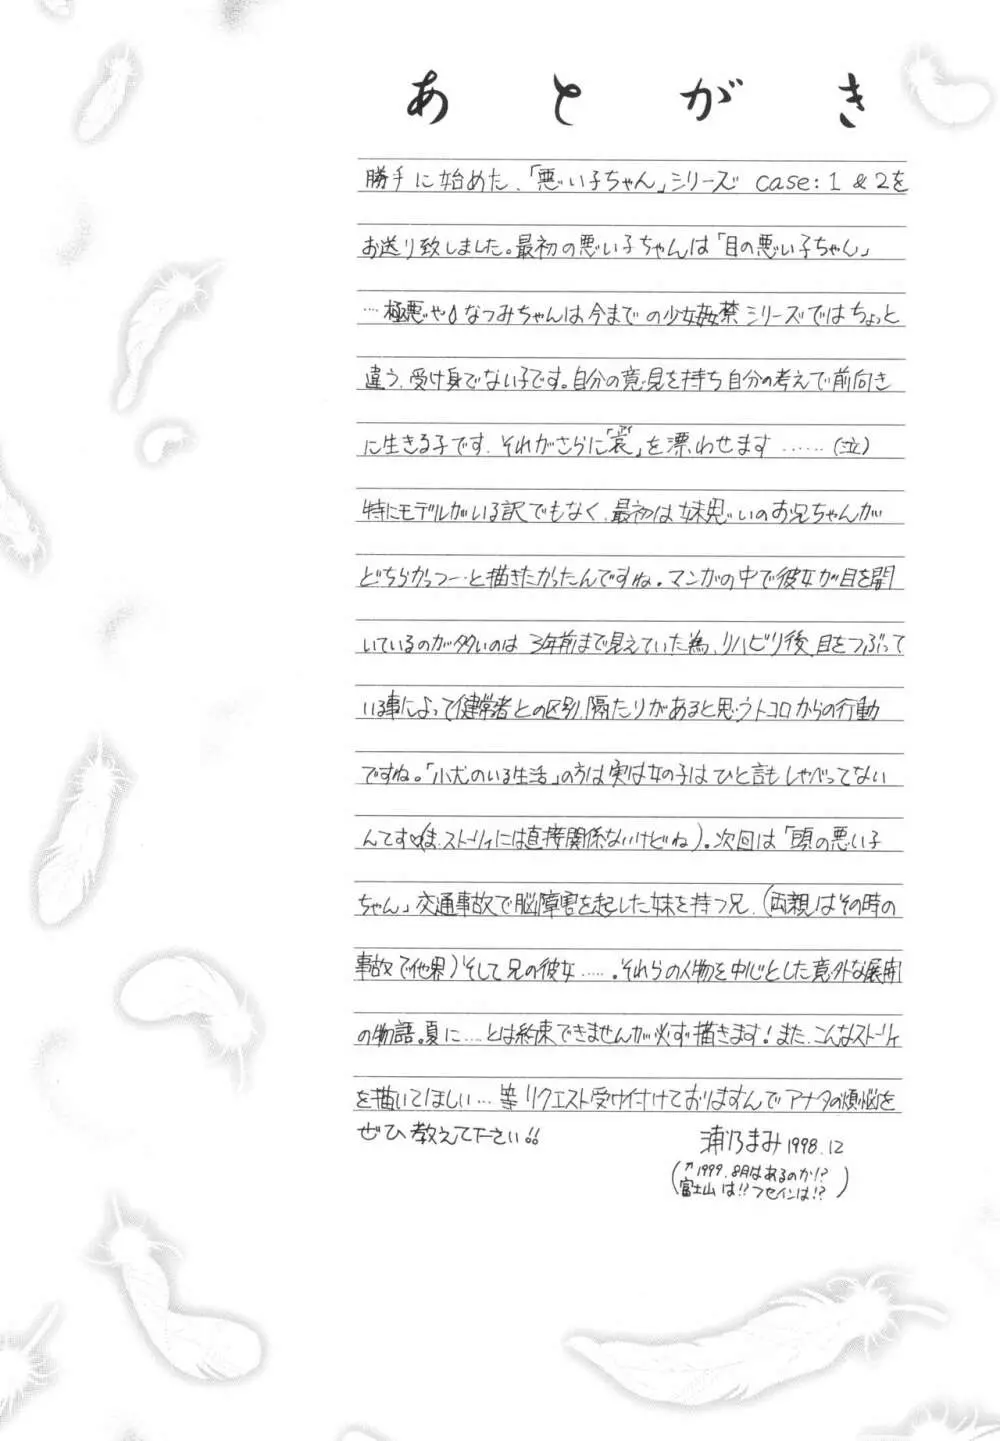 あとがき
勝手に始めた、「悪い子ちゃん」シリーズ case:1&2を
お送り致しました。最初の悪い子ちゃんは「目の悪い子ちゃん」
…極悪や♪なつみちゃんは今までの少女姦禁シリーズではちょっと
違う、受け身でない子です。自分の意見を持ち自分の考えで前向き
に生きる子です。それがさらに「哀」を漂わせます……(泣)
特にモデルがいる訳でもなく、最初は妹思いのお兄ちゃんが
どちらかっつー…と描きたかったんですね。マンガの中で彼女が目を開
いているのが多いのは 3年前まで見えていた為、リハビリ後、目をつぶって
いる事によって健常者との区別、隔たりがあると思うトコロからの行動
ですね。「小犬のいる生活」の方は実は女の子はひと言もしゃべってない
んです(ま、ストーリィには直接関係ないけどね)。次回は「頭の悪い子
ちゃん」交通事故で脳障害を起した妹を持つ兄、(両親はその時の
事故で他界)そして兄の彼女……。それらの人物を中心とした意外な展開
の物語。夏に…とは約束できませんが必ず描きます!また、こんなストーリィ
を描いてほしい…等リクエスト受け付けておりますんでアナタの煩悩を
ぜひ教えて下さい!!
浦乃まみ 1998.12
(↑1999.8月はあるのか!?
富士山は!!?フセインは!?)